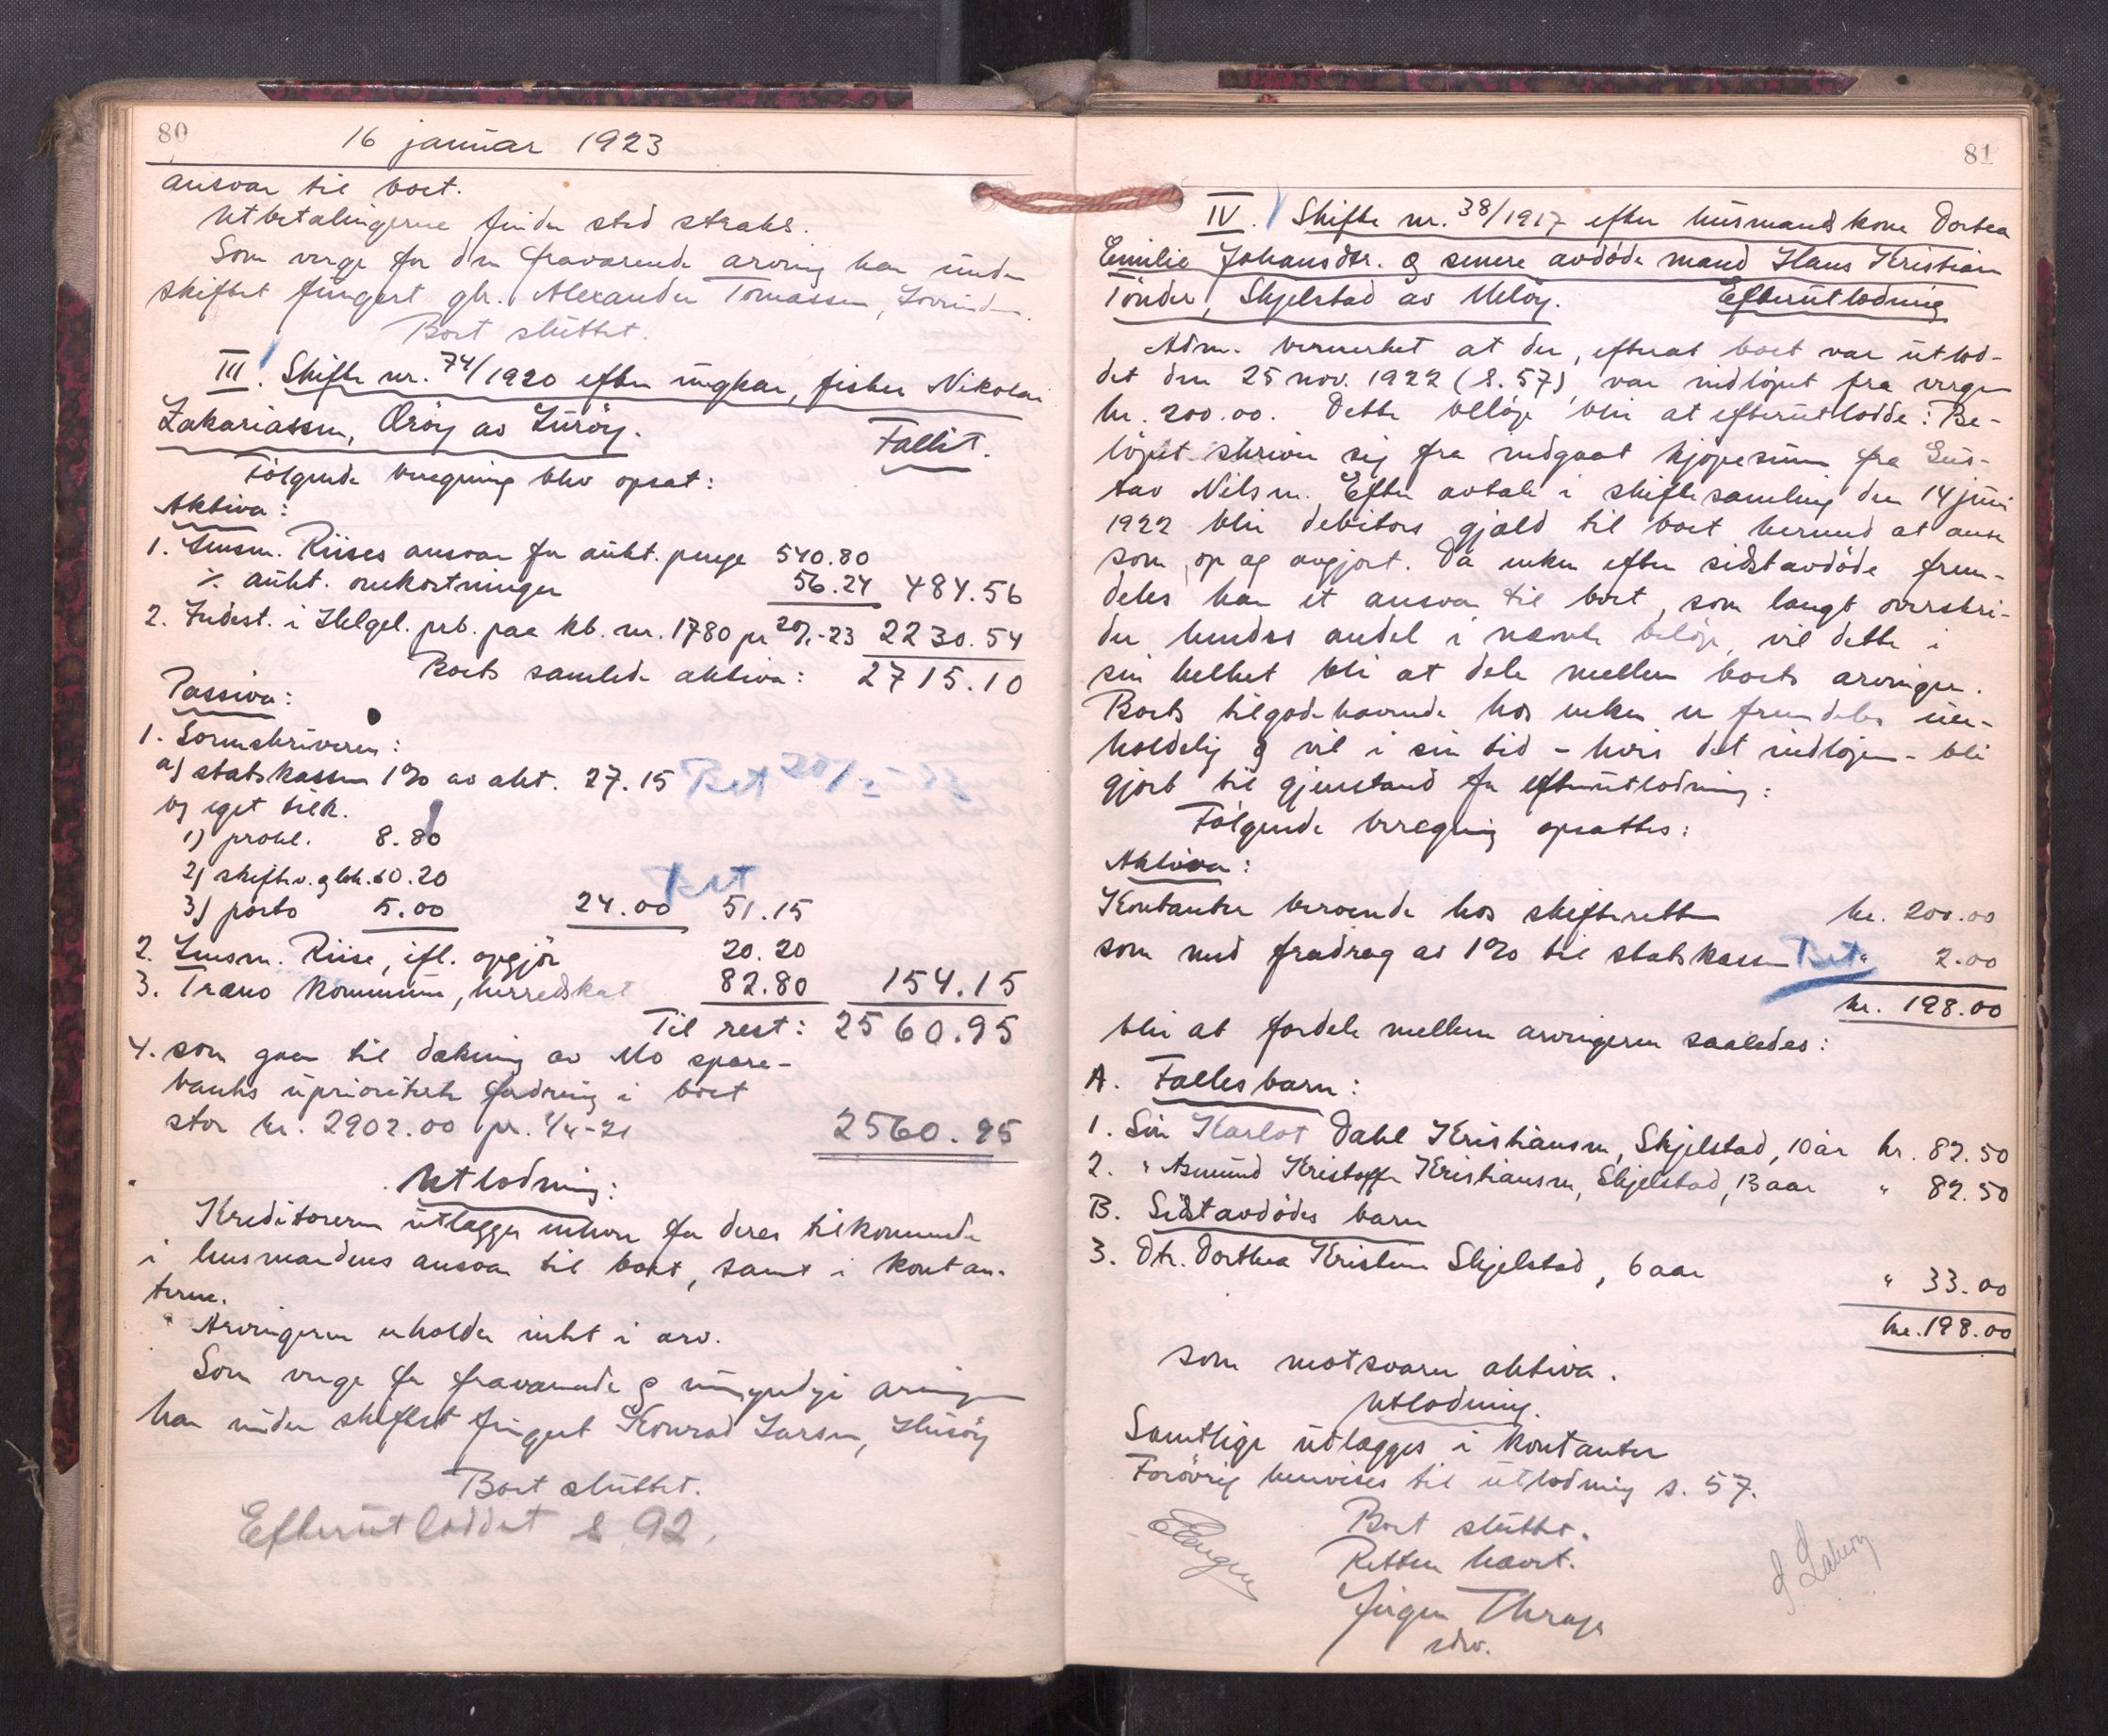 80
16 januar 1923
ansvar til boet.
Utbetalingerne finder sted straks.
Som verge for den fraværende arving har under
skiftet fungert gbr. Alexander Tomassen, Lovunden.
Boet sluttet.
III. Skifte nr. 74/1920 efter ungkar, fisker Nikolai
Zakariassen, Öröy av Luröy. Fallit.
Følgende beregning blev opsat:
Aktiva:
1. Lensm. Riises ansvar for aukt. penge 540.80
÷ aukt. omkostninger 56.24 484.56
2. Indest. i Helgel. prb. paa kb. nr. 1780 pr 20/1-23 2230.54
Boets samlede aktiva: 2715.10
Passiva:
1. Sorenskriveren:
a) statskassen 1% av akt. 27.15 Bet 20/2
b) eget tilk.
1) prokl. 8.80
2) skiftev. & bek. 10.20 Bet
3) porto 5.00 24.00 51.15
2. Lensm. Riise, ifl. opgjör 20.20
3. Træno kommune, herredskat 82.80 154.15
Til rest: 2560.95
4. som gaar til dækning av Mo spare-
banks uprioriterte fordring i boet
stor kr. 2902.00 pr. 1/4-21 2560.95
Utlodning:
Kreditorerne utlægges enhver for deres tilkommende
i lensmandens ansvar til boet, samt i kontan-
terne.
Arvingerne erholder intet i arv.
Som verge for fraværende & umyndige arvinger
har under skiftet fungert Konrad Larsen, Husöy
Boet sluttet.
Efterutloddet s 92.
81
IV. Skifte nr. 38/1917 efter husmandskone Dortea
Emilie Johansdtr. & senere avdöde mand Hans Kristian
Tönder, Skjelstad av Melöy. Efterutlodning
Adm. bemerket at der, efterat boet var utlod-
det den 25 nov. 1922 (s. 57), var indlöpet fra vergen
kr. 200.00. Dette belöp blir at efterutlodde: Be-
löpet skriver sig fra indgaat kjöpesum fra Gus-
tav Nilsen. Efter avtale i skiftesamling den 14 juni
1922 blir debitors gjæld til boet hermed at anse
som op og avgjort. Da enken efter sidstavdöde frem-
deles har et ansvar til boet, som langt overskri-
der hendes andel i nævnte belöp, vil dette i
sin helhet bli at dele mellem boets arvinger.
Boets tilgodehavende hos enken er fremdeles uer-
holdelig & vil i sin tid - hvis det indlöper - bli
gjort til gjenstand for efterutlodning:
Følgende beregning opsattes:
Aktiva:
Kontanter beroende hos skifteretten kr. 200.00
som med fradrag av 1% til statskassen Bet " 2.00
kr. 198.00
blir at fordele mellem arvingerne saaledes:
A. Fælles barn:
1. Sön Karlot Dahl Kristiansen, Skjelstad, 10 aar kr. 82.50
2. " Asmund Kristoffer Kristiansen, Skjelstad, 13 aar " 82.50
B. Sidstavdödes barn
3. Dtr. Dorthea Kristine Skjelstad, 6 aar " 33.00
kr. 198.00
som motsvarer aktiva.
Utlodning.
Samtlige utlægges i kontanter
Forövrig henvises til utlodning s. 57.
Boet sluttet.
Retten hævet.
Jørgen Thrap
sdv.